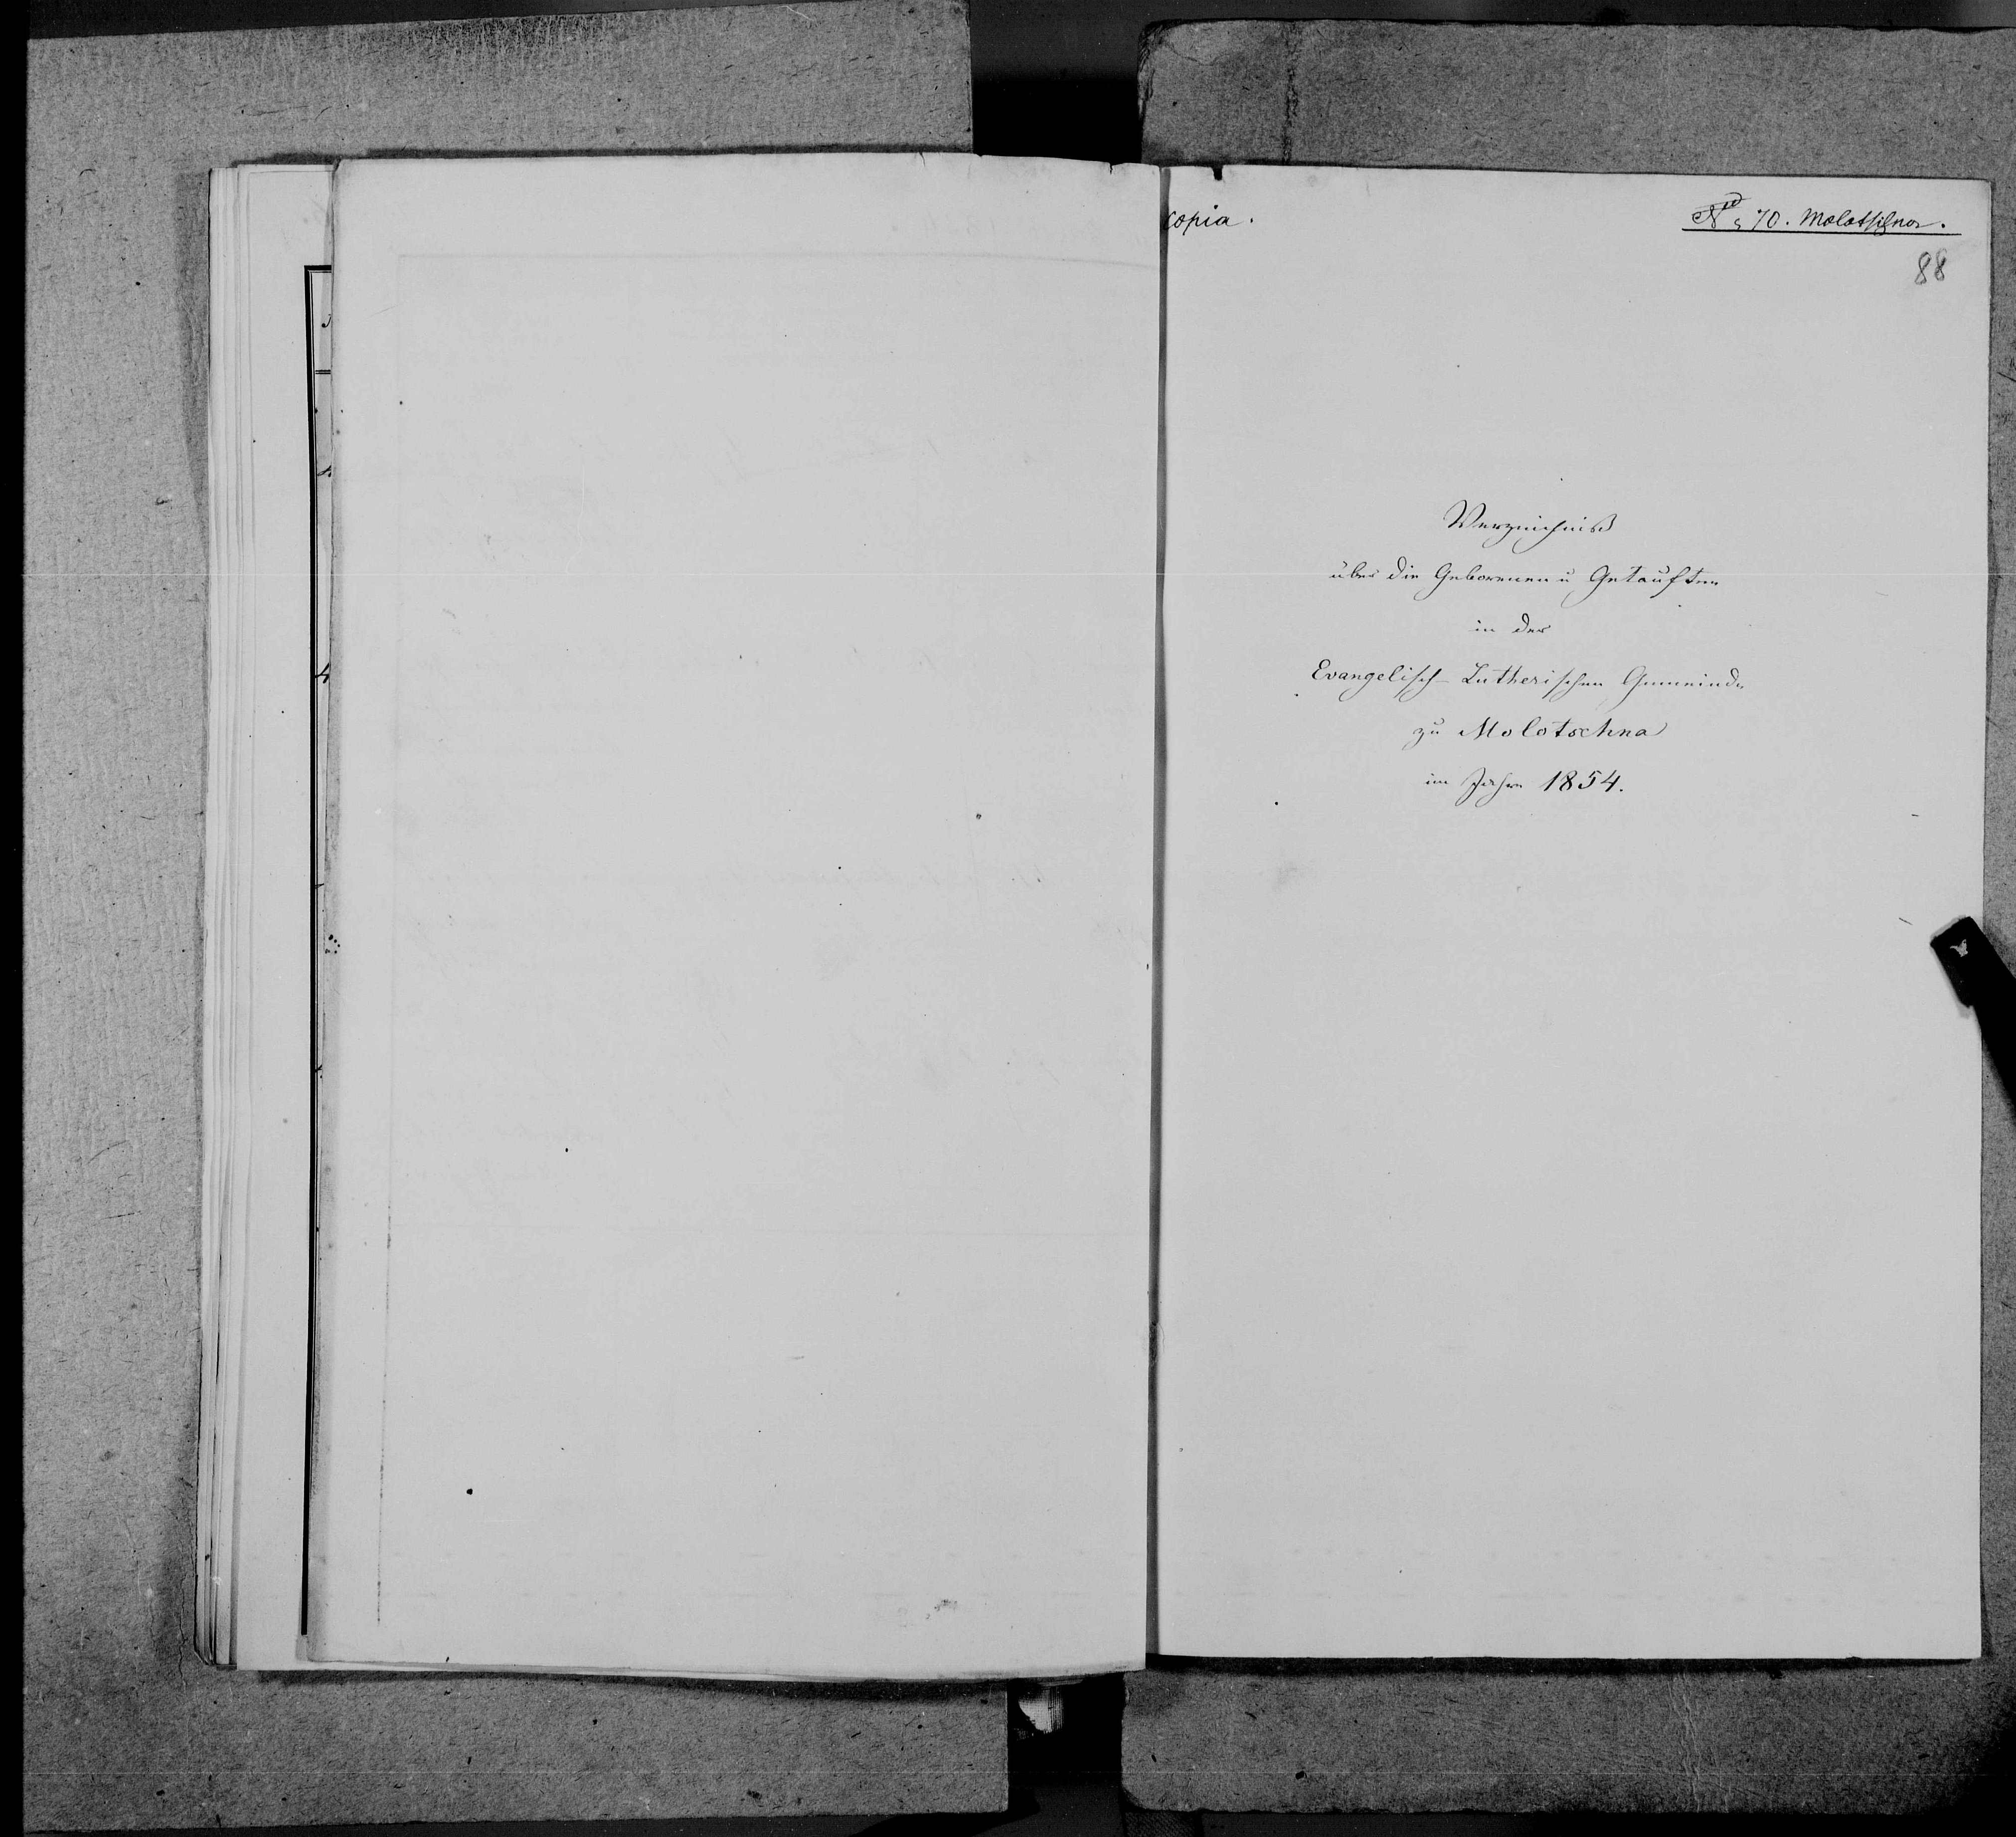 copia.
No 70. Molotschna.
88
Verzeichniß
über die Geborenen u Getauften
in der
Evangelisch-Lutherischen Gemeinde
zu Molotschna
im Jahre 1854.